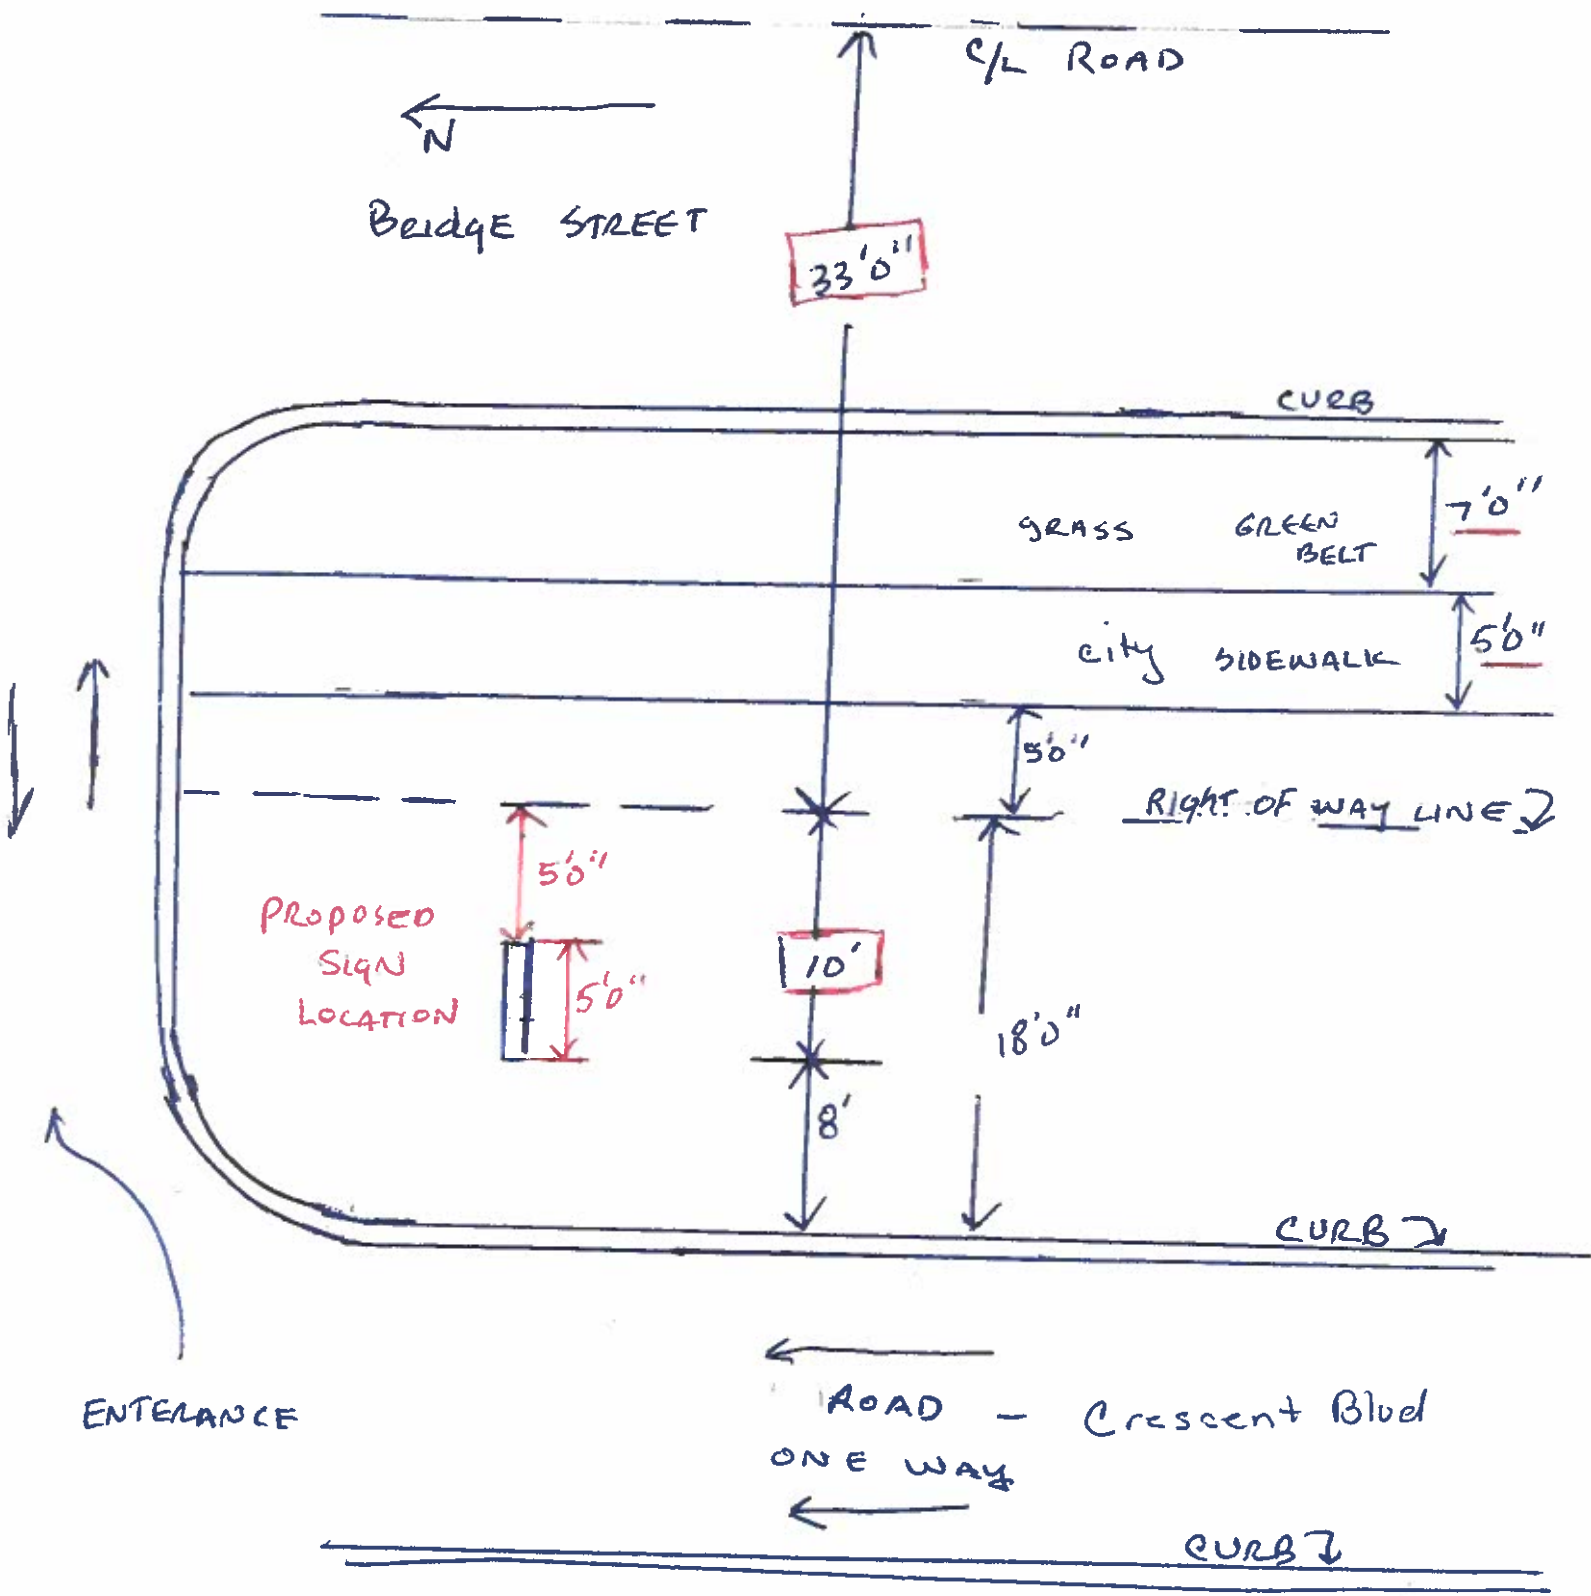 C/L ROAD
N
BRIdgE STREET
33'0"
CURB
7'0"
gRASS GREEN
BELT
5'0"
city SIDEWALK
5'0"
RIghT OF WAY LINE
5'0"
PROPOSED
SIgN
LOCATION
5'0"
10'
18'0"
8'
CURB
ENTERANCE
ROAD - Crescent Blvd
ONE WAY
CURB